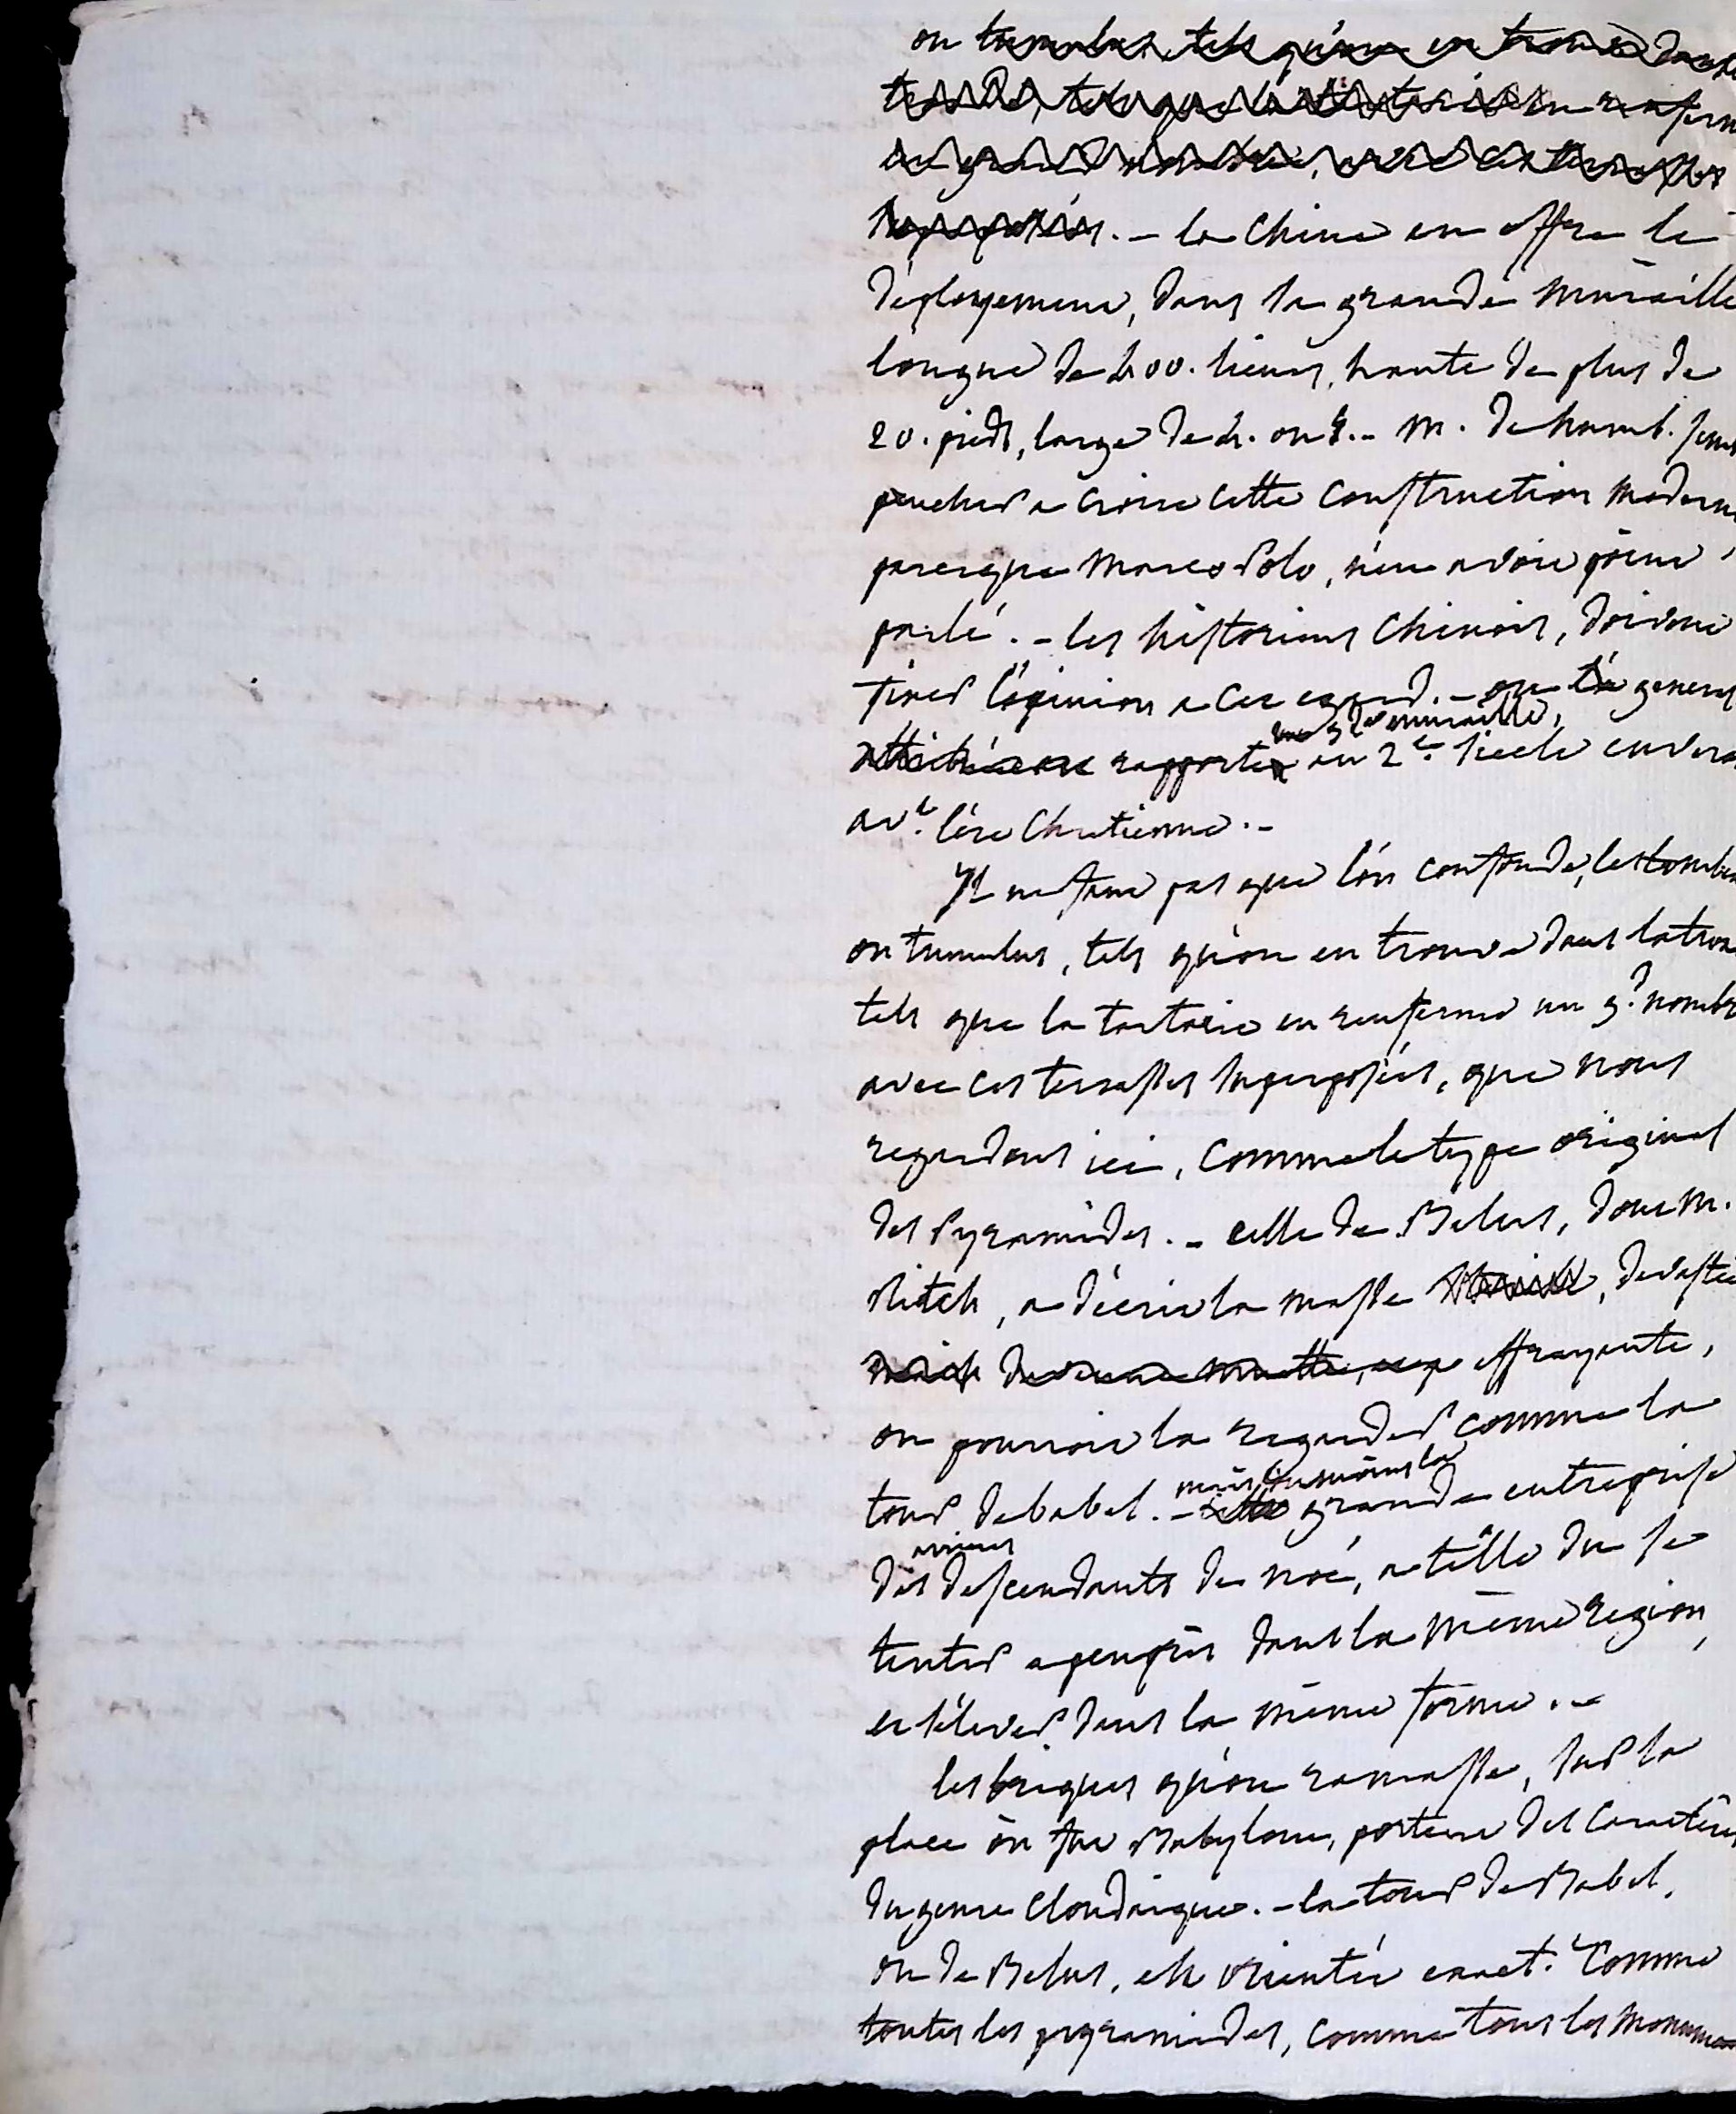 ou tumulus, tels qu'on en trouve dans la
troade, tels que la tartarie en renferm
un grand nombre, avec ces terrasses
superposées. - la Chine en offre le
déployement, dans la grande muraille
longue de 400. lieues, haute de plus de
20. pieds, large de 4. ou 5. - M. de humb. sem
pencher a croire cette construction modern
parceque Marco Polo, n'en avoir point
parlé. - les historiens Chinois, doivent
fixer l'opinion a cet egard. - on l'a general
une gde muraille,
rapporte au 2e. siecle environ
avt. l'ère Chretienne. -
Il ne faut pas que l'on confonde, les tombea
ou tumulus, tels qu'on en trouve dans la troa
tels que la tartarie en renferme un gd. nombr
avec ces terrasses superposées, que nous
regardons ici, comme le type original
des Pyramides. - celle de Belus, dont M.
Ritch, a décrit la masse, devastée
effrayante,
on pourroit la regarder comme la
tour de babel. - grande entreprise
mais du moins la
des descendants de noé, a t'elle du se
tenter a peu près dans la même region,
et s'élever dans la même forme. -
les briques qu'on ramasse, sur la
place où fut Babylone, portent des Caractères
du genre Cloudaique. - la tour de Babel,
ou de Belus, est orientée exactt. Comme
toutes les pyramides, comme tous les monumen